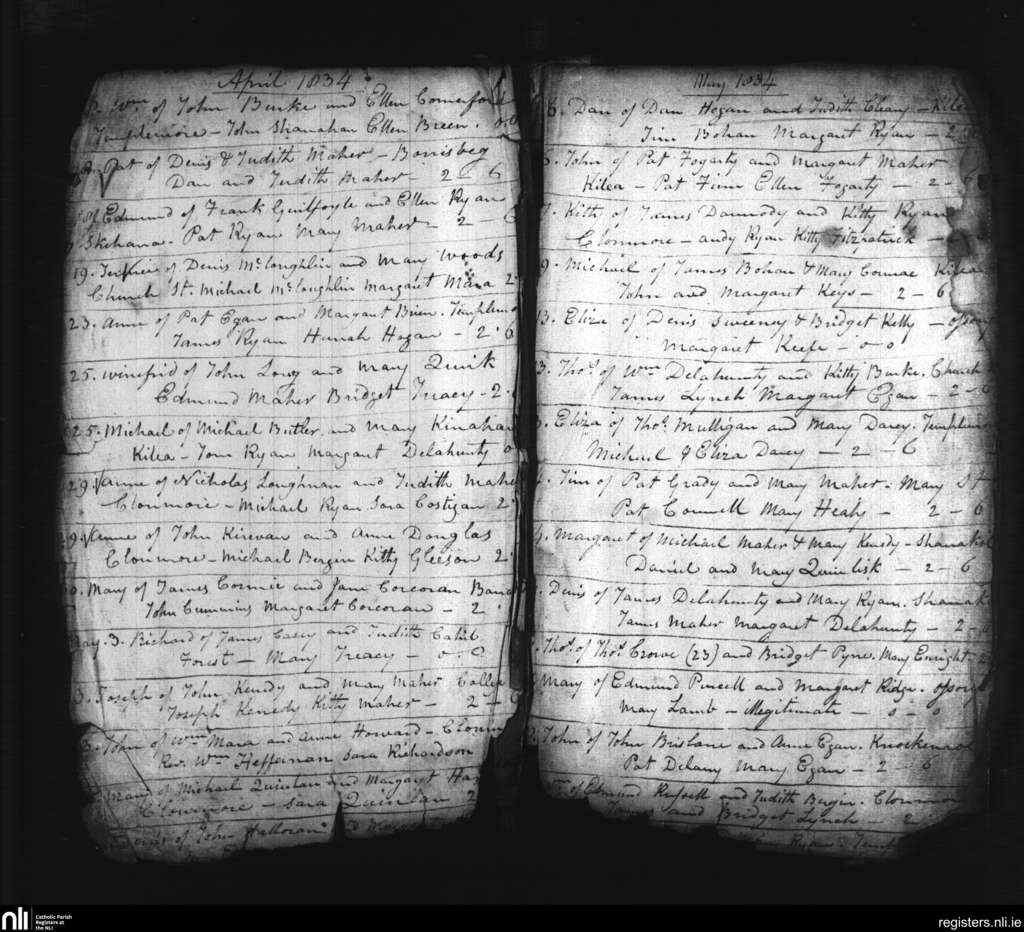 April 1834
Wm of John Burke and Ellen Comerford
Templemore - John Shanahan Ellen Breen. 0-0
Pat of Denis & Judith Maher - Borrisbeg
Dan and Judith Maher - 2 - 6
18. Edmund of Frank Guilfoyle and Ellen Ryan
Skehana. Pat Ryan Mary Maher - 2 - 6
19. of Denis McLoughlin and Mary Woods
Church St. Michael McLoughlin Margaret Mara 2
23. Anne of Pat Egan and Margaret Brien. Templem
James Ryan Hanah Hogan - 2 - 6
25. Winefrid of John Long and Mary Quirk
Edmund Maher Bridget Treacy - 2 -
25. Michael of Michael Butler and Mary Kinahan
Kilea - Tom Ryan Margaret Delahunty 0
29. Anne of Nicholas Loughnan and Judith Mahe
Clonmore - Michael Ryan Sara Costigan 2
29. Anne of John Kirevan and Anne Douglas
Clonmore - Michael Bergin Kitty Gleeson 2
Mary of James Cormic and Jane Corcoran
John Cummins Margaret Corcoran - 2
May. 3. Richard of James Casey and Judith Cahil
Forest - Mary Treacy - 0 - 0
3. Joseph of John Kenedy and Mary Maher
Joseph Kenedy Kitty Maher - 2 -
John of Wm Mara and Anne Howard - Clonm
Rev. Wm Heffernan Sara Richardson
Mary of Michael Quinlan and Margaret
Clonmore - Sara Quinlan 2
of John Halloran
May 1834
6. Dan of Dan Hogan and Judith Cleary - Kilea
Tim Bohan Margaret Ryan - 2 -
John of Pat Fogarty and Margaret Maher
Kilea - Pat Finn Ellen Fogarty - 2 - 6
Kitty of James Darmody and Kitty Ryan
Clonmore - Andy Ryan Kitty Fitzpatrick -
9. Michael of James Bohan & Mary Cormac Kilea
John and Margaret Keys - 2 - 6
13. Eliza of Denis Sweeney & Bridget Kelly - Ossory
Margaret Keefe - 0 0
13. Thos. of Wm Delahunty and Kitty Burke. Church
James Lynch Margaret Egan - 2 - 6
Eliza of Thos. Mulligan and Mary Darcy. Templem
Michael & Eliza Darcy - 2 - 6
Tim of Pat Grady and Mary Maher - Mary St
Pat Connell Mary Heahy - 2 - 6
Margaret of Michael Maher & Mary Kenedy - Shanakil
Daniel and Mary Quinlisk - 2 - 6
Denis of James Delahunty and Mary Ryan. Shanak
James Maher Margaret Delahunty - 2 -
Thos. of Thos. Crowe (23) and Bridget Pyne. Mary Enright - 2
Mary of Edmund Purcell and Margaret Ridge. Ossory
Mary Lamb - Illegitimate - 0 - 0
John of John Brislane and Anne Egan. Knockana
Pat Delany Mary Egan - 2 - 6
Wm of Edmund Russell and Judith Bergin. Clonmor
and Bridget Lynch - 2
nli
Catholic Parish
Registers at
the NLI
registers.nli.ie